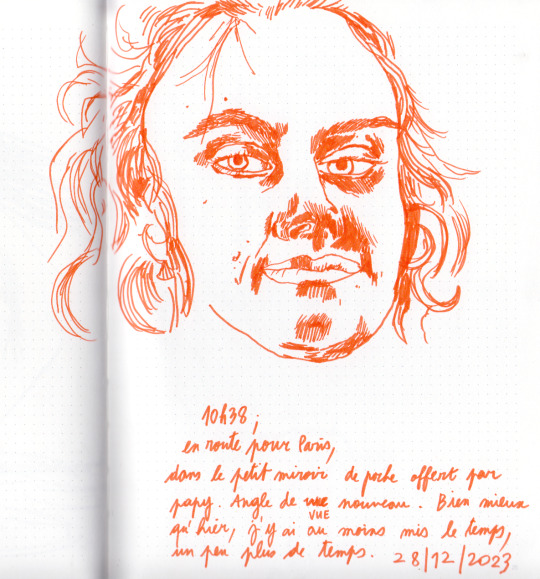 10h38 ;
en route pour Paris,
dans le petit miroir de poche offert par
papy. Angle de vue nouveau. Bien mieux
VUE
qu'hier, j'y ai au moins mis le temps,
un peu plus de temps. 28/12/2023